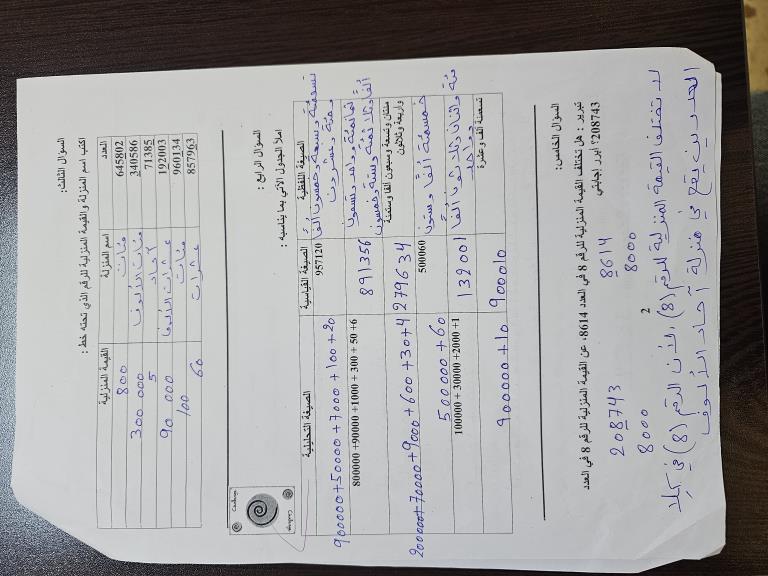 السؤال الثالث:
اكتب اسم المنزلة والقيمة المنزلية للرقم الذي تحته خط :
العدد اسم المنزلة القيمة المنزلية
645802 مئات 800
340586 مئات الألوف 300 000
71385 آحاد 5
192003 عشرات الألوف 90 000
960134 مئات 100
857963 عشرات 60
السؤال الرابع :
املأ الجدول الآتي بما يناسبه :
الصيغة اللفظية الصيغة القياسية الصيغة التحليلية
تسعمئة وسبعة وخمسون ألفًا ومئة وعشرون 957120 900000+50000+7000+100+20
ثمانمئة وواحد وتسعون ألفًا وثلاثمئة وستة وخمسون 891356 800000 +90000 +1000 + 300 + 50 +6
مئتان وتسعة وسبعون ألفا وستمئة وأربعة وثلاثون 279634 200000+70000+9000+600+30+4
خمسمئة ألفًا وستون 500060 500000+60
مئة واثنان وثلاثون ألفًا وواحد 132001 100000 + 30000 +2000 +1
تسعمئة ألف وعشرة 900010 900000+10
السؤال الخامس:
تبرير : هل تختلف القيمة المنزلية للرقم 8 في العدد 8614، عن القيمة المنزلية للرقم 8 في العدد
208743؟ أبرر إجابتي
8614 208743
8000 8000
لا تختلف القيمة المنزلية للرقم (8)، لأن الرقم (8) في كلا
العددين يقع في منزلة آحاد الألوف
2